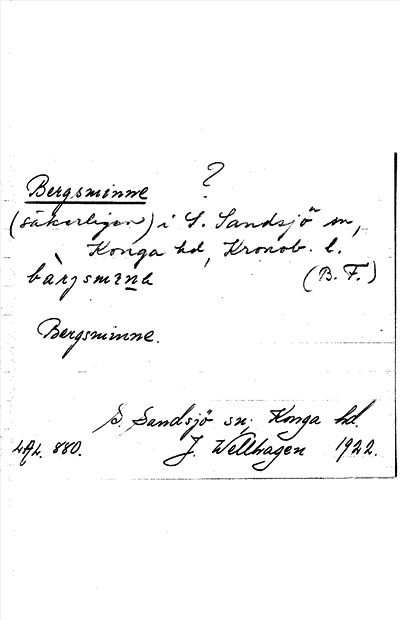 ?
Bergsminne
(säkerligen) i S. Sandsjö sn,
Konga hd, Kronob. l.
(B. F.)
Bergsminne.
S. Sandsjö sn, Konga hd.
LAL. 880. J. Wellhagen 1922.